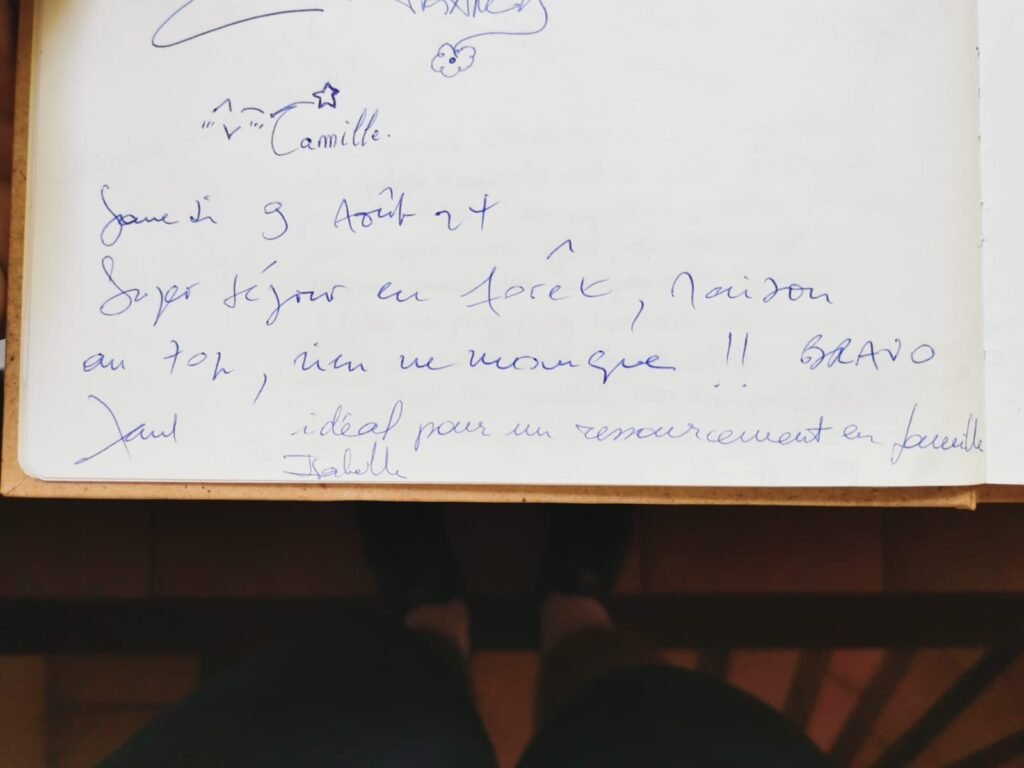 Camille.
Samedi 9 Août
Super séjour en forêt, Maison
au top, rien ne manque !! BRAVO
idéal pour un ressourcement en famille
Isabelle